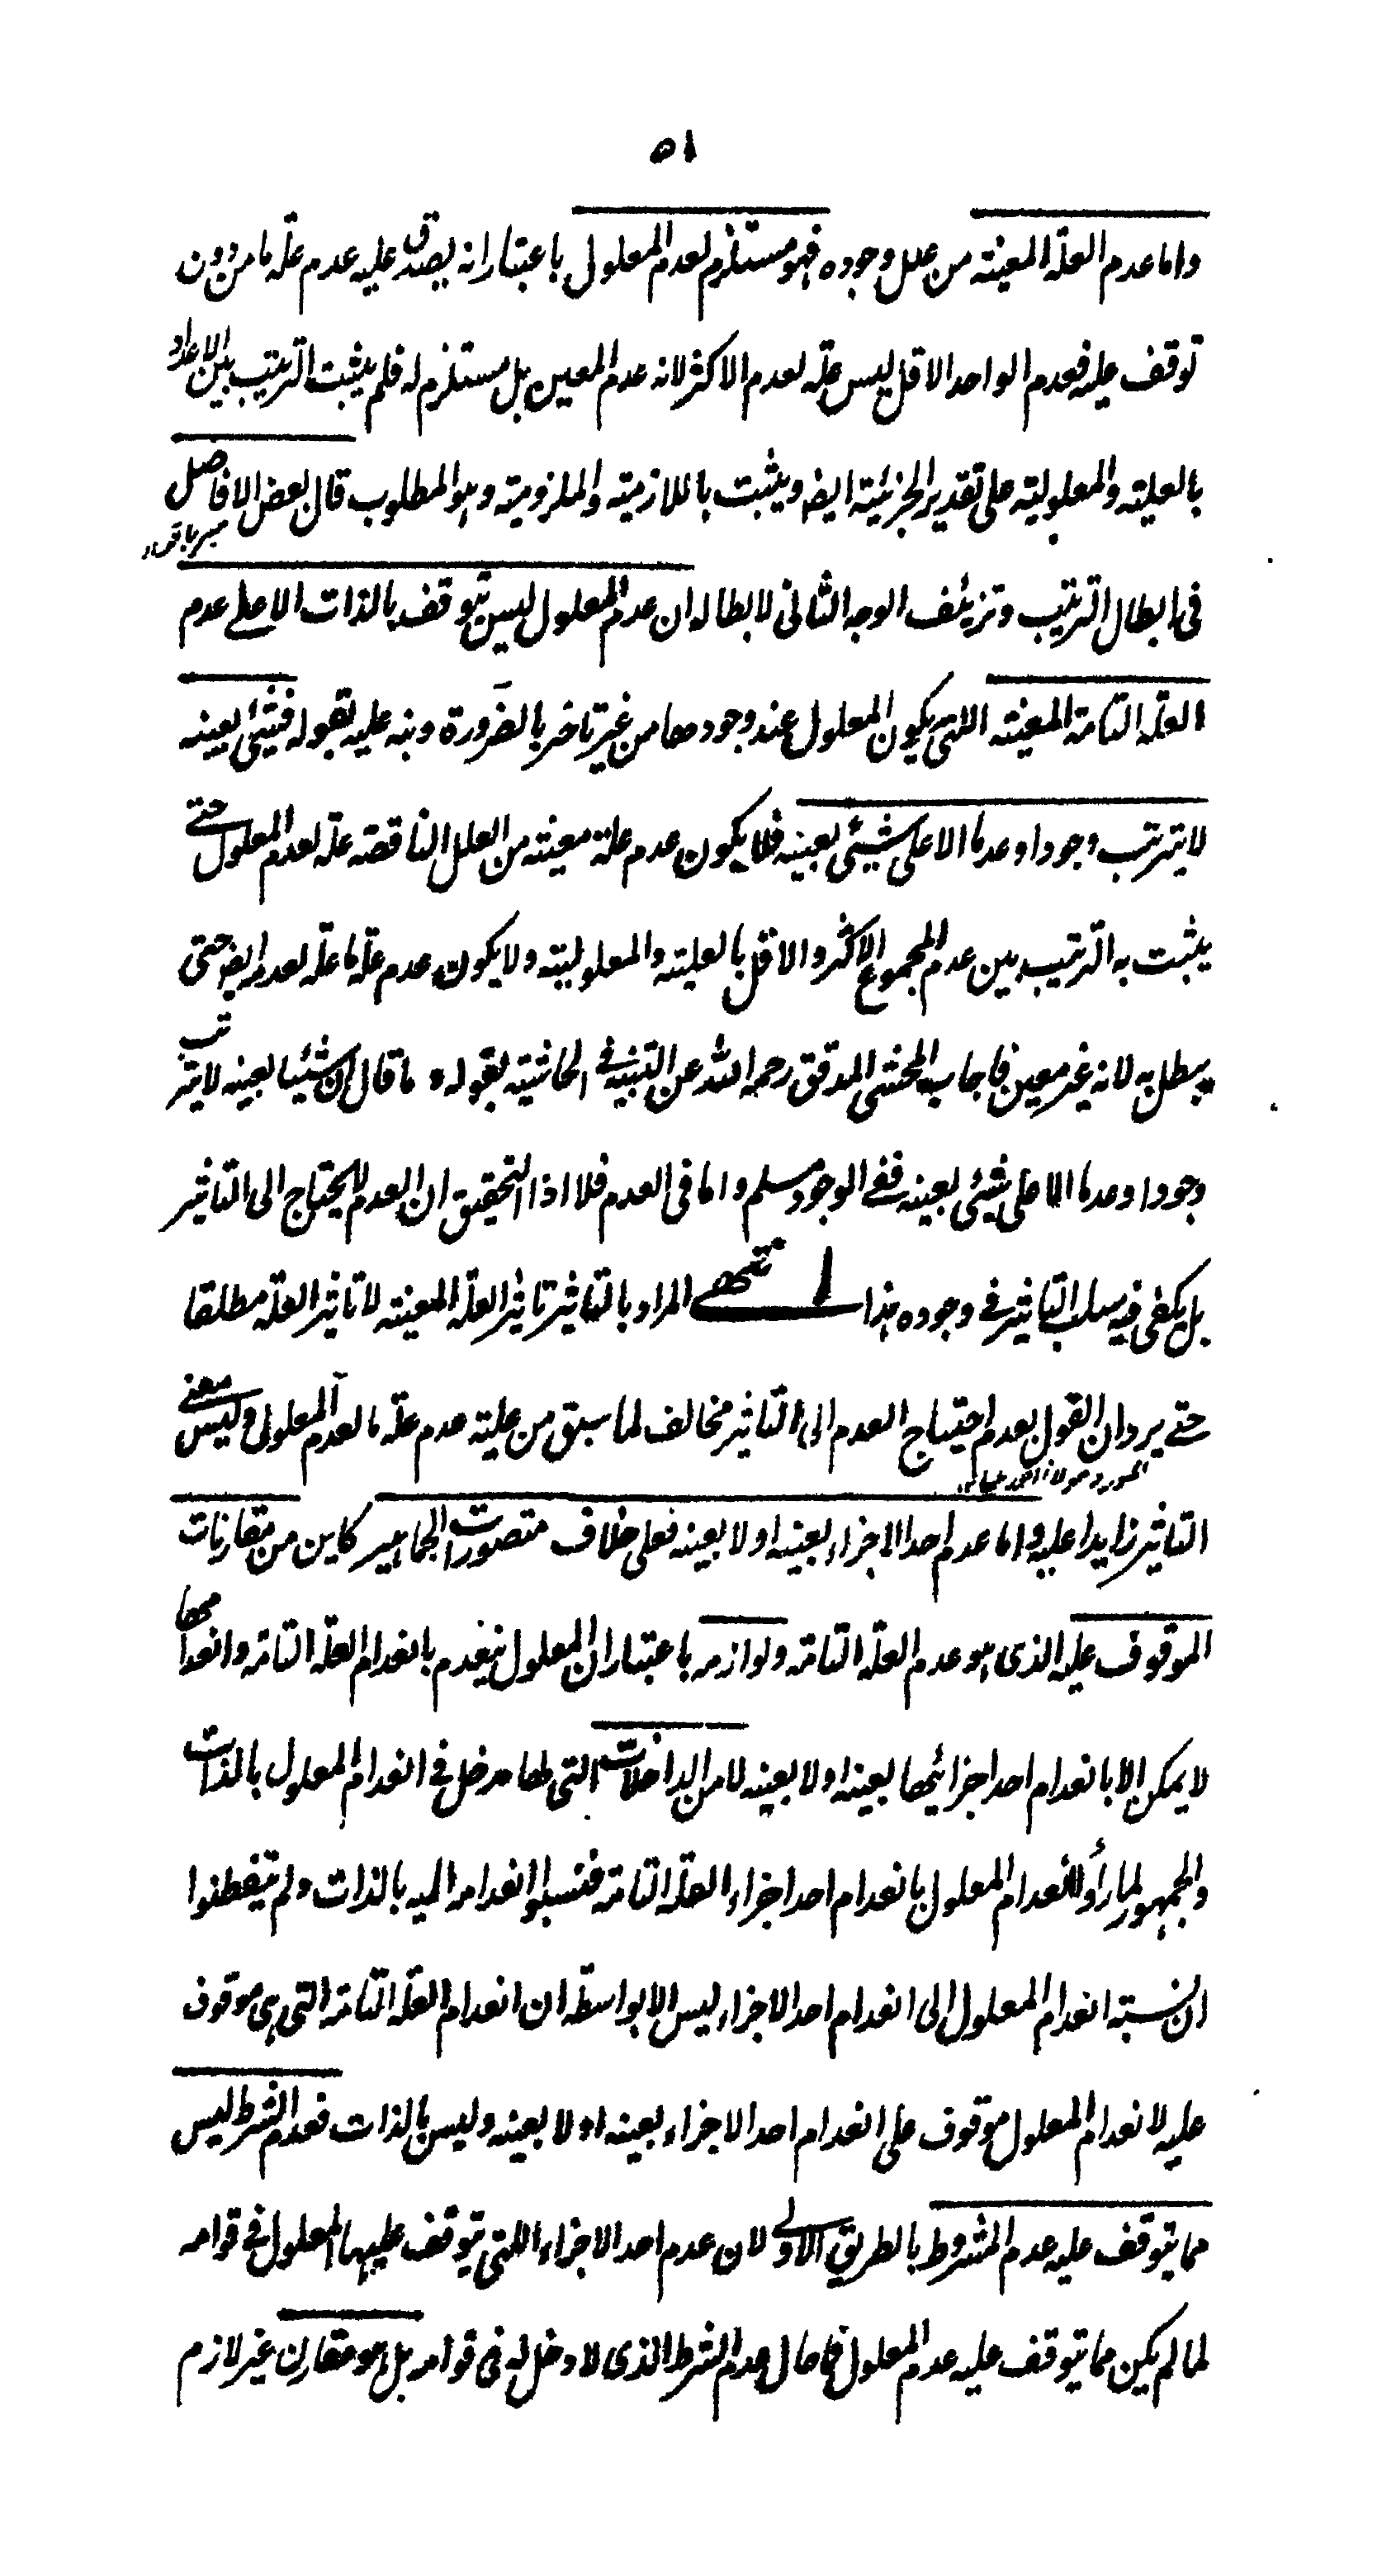 ٥١
واما عدم العلة المعينة من علل وجوده فهو مستلزم لعدم المعلول باعتبار انه يصدق عليه عدم علة ما من دون
توقف عليه فعدم الواحد الاقل ليس علة لعدم الاكثر لانه عدم المعين بل مستلزم له فلم يثبت الترتيب بين الاعداد
بالعلية والمعلولية على تقدير الجزئية ايضا ويثبت باللازمية والملزومية وهو المطلوب قال بعض الافاضل
مير باقر
فى ابطال الترتيب وتزئيف الوجه الثانى لابطاله ان عدم المعلول ليس يتوقف بالذات الا على عدم
العلة التامة المعينة اللتى يكون المعلول عند وجودها من غير تاخر بالضرورة ونبه عليه بقوله فشيئ بعينه
لا يترتب وجودا وعدما الا على شيئى بعينه فلا يكون عدم علة معينة من العلل الناقصة علة لعدم المعلول حتے
يثبت به الترتيب بين عدم المجموع الاكثر والاقل بالعلية والمعلولية ولا يكون عدم علة ما علة لعدم ايضا حتى
يبطل به لانه غير معين فاجاب المحشى المدقق رحمه الله عن التنبيه فے الحاشية بقوله ما قال ان شئيا بعينه لا يترتب
وجودا وعدما الا على شيئى بعينه ففے الوجود مسلم واما فى العدم فلا اذا التحقيق ان العدم لا يحتاج الى التاثير
بل يكفى فيه سلب التاثير فے وجوده هذا انتهے المراد بالتاثير تاثير العلة المعينة لا تاثير العلة مطلقا
حتے يرد ان القول بعدم احتياج العدم الى التاثير مخالف لما سبق من علية عدم علة ما لعدم المعلول وليس معنے
التاثير زايدا عليه واما عدم احد الاجزاء بعينه او لا بعينه فعلى خلاف متصورات الجماهير كاين من مقارنات
الموقوف عليه الذى هو عدم العلة التامة ولوازمه باعتبار ان المعلول ينعدم بانعدام العلة التامة وانعدامها
لا يمكن الا بانعدام احد اجزائها بعينه او لا بعينه لا من الداخلات التى لها مدخل فے انعدام المعلول بالذات
والجمهور لما رأوا انعدام المعلول بانعدام احد اجزاء العلة التامة فنسبوا انعدامه اليه بالذات ولم يتفطنوا
ان نسبة انعدام المعلول الى انعدام احد الاجزاء ليس الا بواسطة ان انعدام العلة التامة التى هى موقوف
عليه لانعدام المعلول موقوف على انعدام احد الاجزاء بعينه او لا بعينه وليس بالذات فعدم الشرط ليس
مما يتوقف عليه عدم المشروط بالطريق الاولے لان عدم احد الاجزاء اللتى يتوقف عليها المعلول فے قوامه
لما لم يكن مما يتوقف عليه عدم المعلول فما حال عدم الشرط الذى لا دخل له فى قوامه بل هو مقارن غير لازم